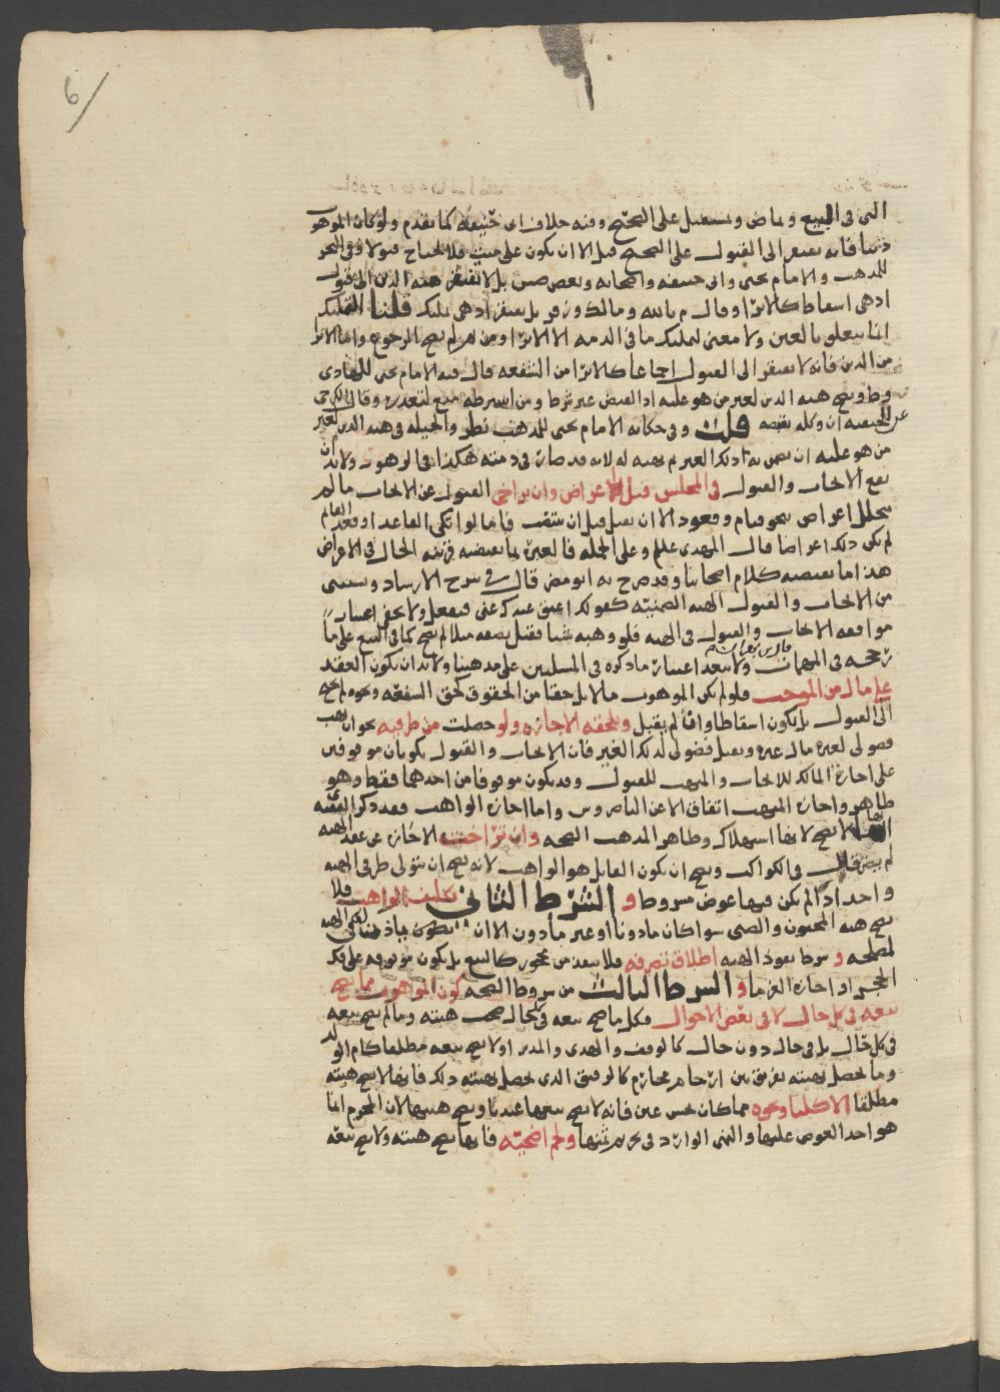 التي في البيع وبماض ومستقبل على الصحيح وفيه خلاف ابي حنيفة كما تقدم ولو كان الموهوب
دينا فانه يفتقر الى القبول على الصحيح قيل الا ان يكون على ميت فلا يحتاج قبولا وفي البحر
للمذهب والامام يحيى وابي حنيفة واصحابه وبعض صش بل لا تفتقر هبة الدين الى قبول
اذ هي اسقاط كالابرا وقال م بالله ومالك وزفر بل يفتقر اذ هي تمليك قلنا التمليك
انما يتعلق بالعين ولا معنى لتمليك ما في الذمة الا الابرا ومن ثم لم يصح الرجوع واما الابرا
من الدين فانه لا يفتقر الى القبول اجماعا كالابرا من الشفعة قال فيه الامام يحيى للهادي
وط وتصح هبة الدين لغير من هو عليه اذ القبض غير شرط ومن اشترطه منع لتعذره وقال الكرخي
عن الحنفية ان وكله بقبضه قلت وفي حكاية الامام يحيى للمذهب نظر والحيلة في هبة الدين لغير
من هو عليه ان يضمن به ذلك الغير ثم يهبه له لانه قد صار في ذمته هكذا في الزهور ولا بد ان
يقع الايجاب والقبول في المجلس قبل الاعراض وان تراخى القبول عن الايجاب ما لم
يتخلل اعراض نحو قيام وقعود الا ان يقبل قبل ان ينتقب فاما لو اتكى القاعد او قعد القايم
لم يكن ذلك اعراضا قال المهدي علم وعلى الجملة فالعبرة بما تقتضيه قرينة الحال في الاعراض
هذا ما يقتضيه كلام اصحابنا وقد صرح به ابو مضر قال في شرح الارشاد ويستثنى
من الايجاب والقبول الهبة الضمنية كقولك اعتق عبدك عني فيفعل ولا يخفى اعتبار
موافقة الايجاب والقبول في الهبة فلو وهبه شيا فقبل نصفه مثلا لم يصح كما في البيع على ما
رجحه في المهمات ولا يبعد اعتبار ما ذكروه في المسلمين على مذهبنا ولا بد ان يكون العقد
على مال من الموجب فلو لم يكن الموهوب مالا بل حقا من الحقوق كحق الشفعة ونحوه لم يحتج
الى القبول بل يكون اسقاطا وان لم يقبل وتلحقه الاجازة ولو حصلت من طرفيه نحو ان يهب
فضولي لغيره مال غيره ويقبل فضولي لذلك الغير فان الايجاب والقبول يكونان موقوفين
على اجازة المالك للايجاب والمتهب للقبول وقد يكون موقوفا من احدهما فقط وهو
ظاهر واجازة المتهب اتفاق الا عن الناصر وس واما اجازة الواهب فقد ذكر الفقيه
لا تصح لانها استهلاك وظاهر المذهب الصحة وان تراخت الاجازة عن عقد الهبة
لم يضر قال في الكواكب ويصح ان يكون القابل هو الواهب لانه يصح ان يتولى طرفي الهبة
واحد اذا لم يكن فيها عوض مشروط و الشرط الثاني تكليف الواهب فلا
تصح هبة المجنون والصبي سوا كان ماذونا او غير ماذون الا ان
لمصلحة وشرط نفوذ الهبة اطلاق تصرفه فلا ينفذ من محجور كالبيع بل يكون موقوفه على فك
الحجر او اجازة الغرما و الشرط الثالث من شروط الصحة كون الموهوب مما يصح
بيعه في كل حال لا في بعض الاحوال فكل ما صح بيعه في كل حال صحت هبته وما لم يصح بيعه
في كل حال بل في حال دون حال كالوقف والهدي والمدبر او لا يصح بيعه مطلقا كام الولد
وما يحصل بهبته تفريق بين ارحام محارم كالرقيق الذي يحصل بهبته ذلك فانها لا تصح هبته
مطلقا الا كلبا ونحوه مما كان نجس عين فانه لا يصح بيعها عندنا وتصح هبتها لان المحرم انما
هو اخذ العوض عليها والنهي الوارد في تحريم ثمنها ولحم اضحية فانها تصح هبته ولا يصح بيعه